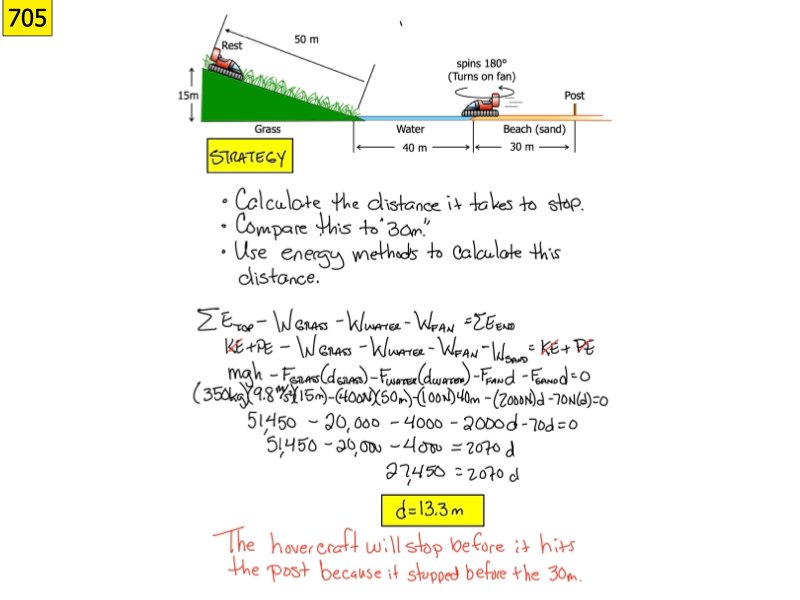 705
Rest
50 m
spins 180°
(Turns on fan)
15m
Post
Grass
Water
Beach (sand)
40 m
30 m
STRATEGY
• Calculate the distance it takes to stop.
• Compare this to "30m."
• Use energy methods to calculate this
distance.
ΣE_TOP - W_GRASS - W_WATER - W_FAN = ΣE_END
KE + PE - W_GRASS - W_WATER - W_FAN - W_SAND = KE + PE
mgh - F_GRASS(d_GRASS) - F_WATER(d_WATER) - F_FAN d - F_SAND d = 0
(350kg)(9.8 m/s²)(15m) - (400N)(50m) - (100N)40m - (2000N)d - 70N(d) = 0
51,450 - 20,000 - 4000 - 2000d - 70d = 0
51,450 - 20,000 - 4000 = 2070 d
27,450 = 2070 d
d = 13.3 m
The hovercraft will stop before it hits
the post because it stopped before the 30m.